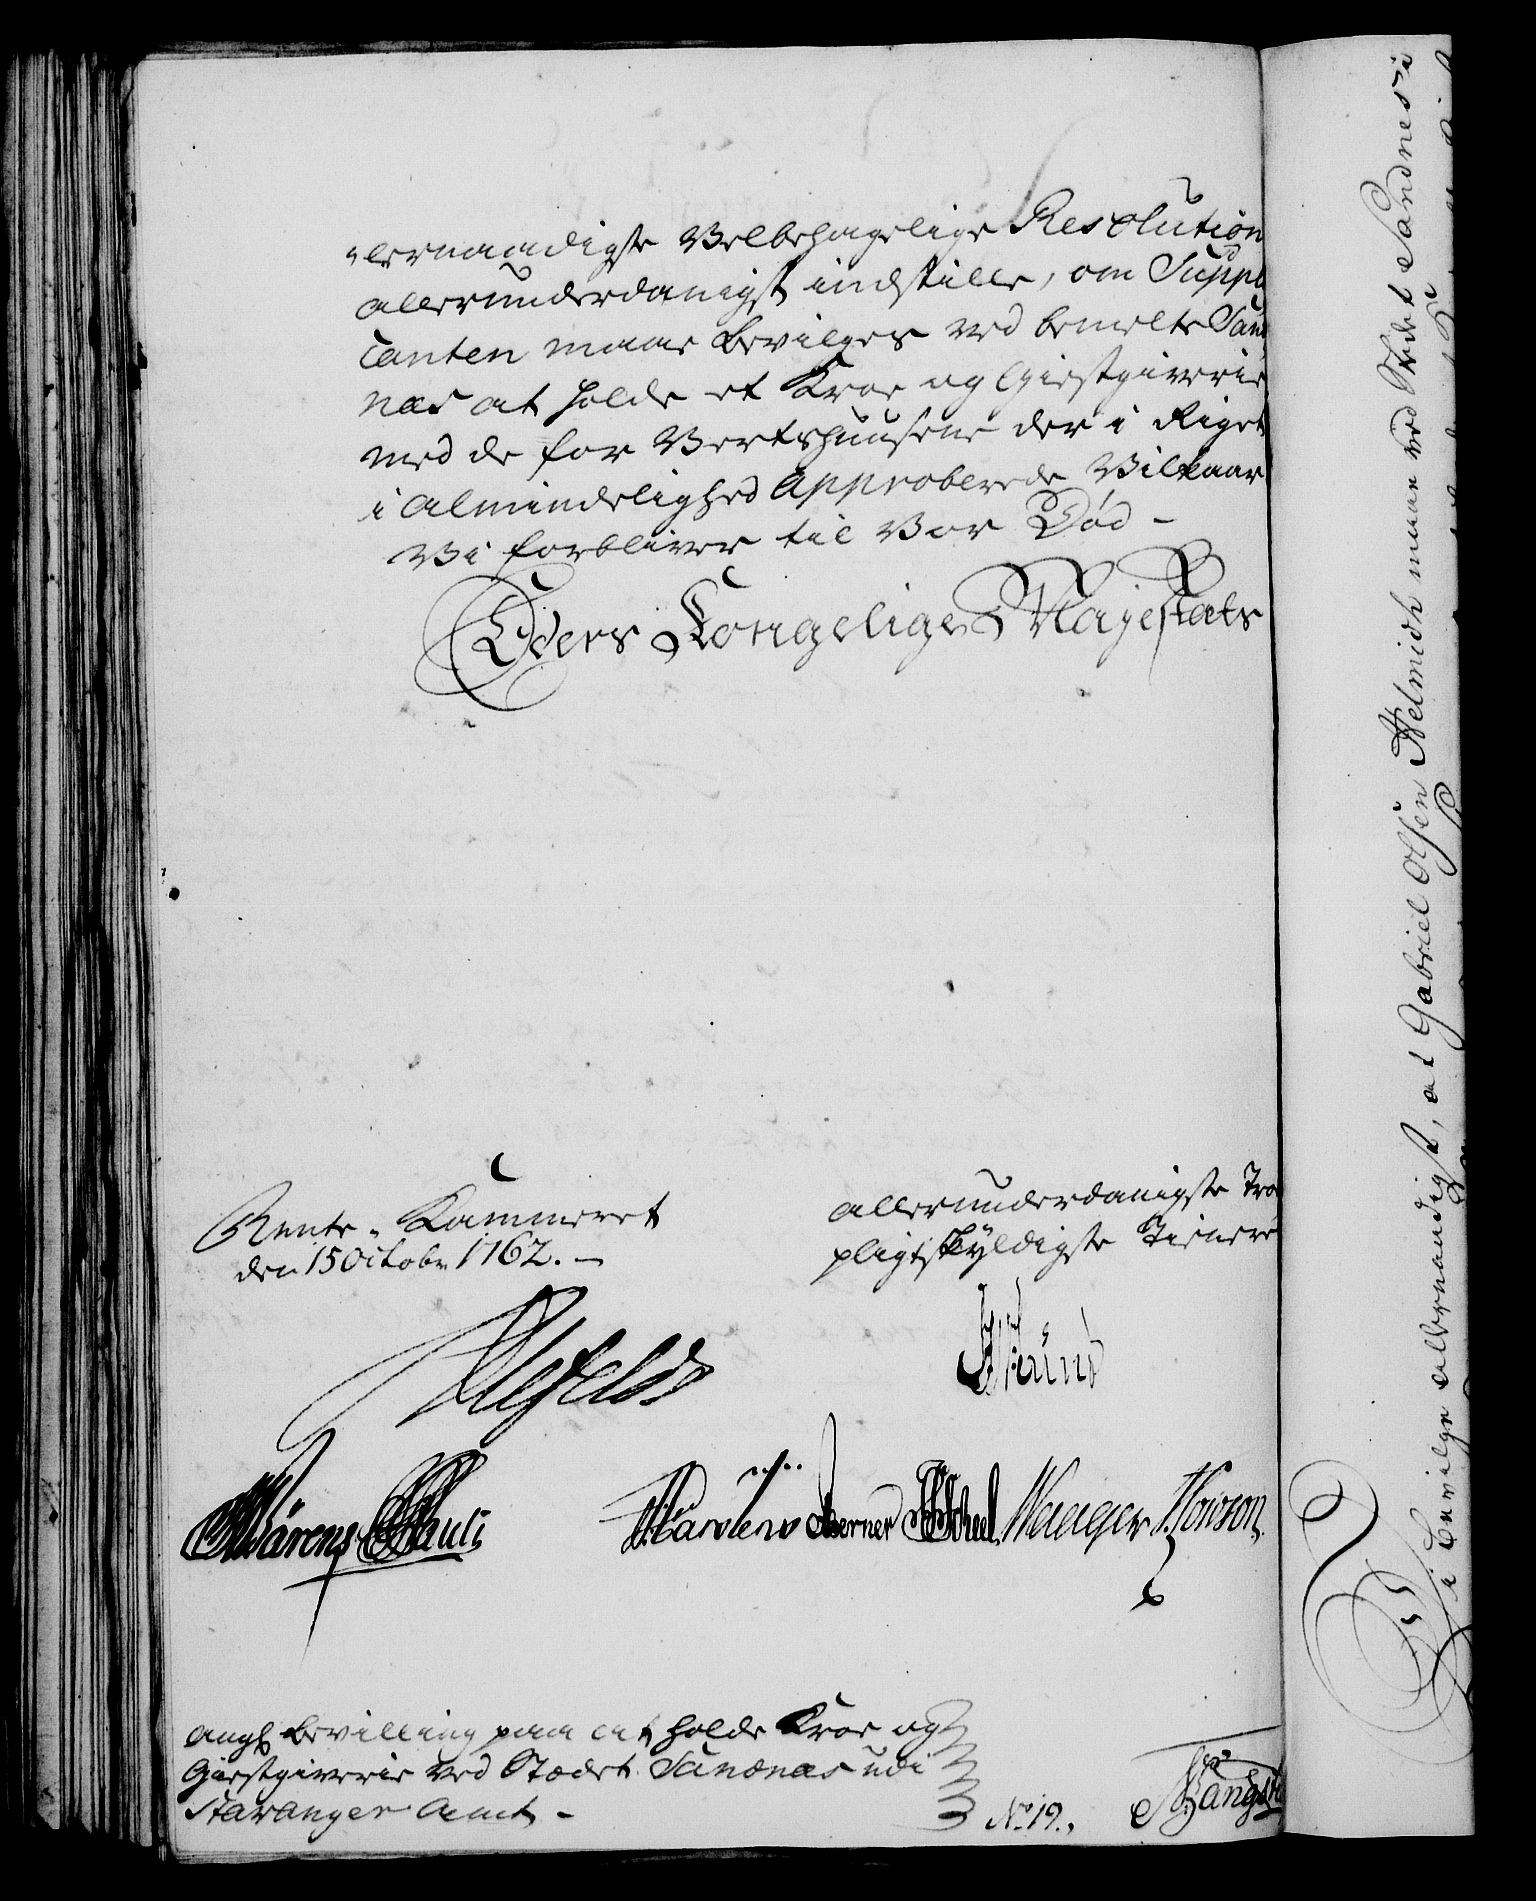 "lernaadigste Velbehagelige Resolution
allerunderdanigst indstille, om Suppli
canten maae bevilges ved bemelte Sand
næs at holde et Kroe og Giestgiverie
med de for Vertshuusene der i Riget
i Almindelighed approberede Vilkaar
Vi forbliver til Vor Død –
Eders Kongelige Majestæts
Rente-Kammeret
den 15 Octobr. 1762. –
allerunderdanigste Troe
pligtskyldigste Tienere
Ahlefeldt
Bärens Pauli
Carstens Berner Scheel Waager Howson
ang: Bevilling paa at holde Kroe og
Giestgiverie ved Stædet Sandnæs udi
Stavanger Amt –
No. 19.
Bangst
Vi bevilge allernaadigst, at Gabriel Olsen Helmich maae ved Stædet Sandnes i